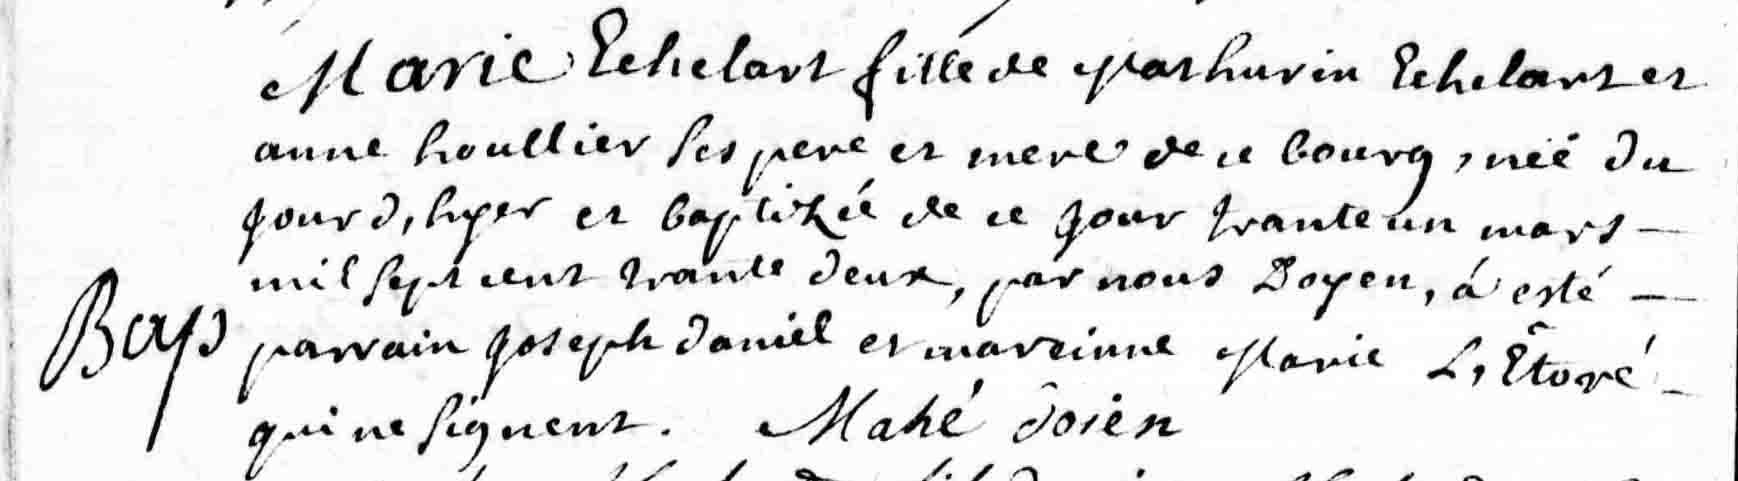 Marie Echelart fille de Mathurin Echelart et
anne houllier ses pere et mere de ce bourg, née du
jour d,hyer et baptizée de ce jour trante un mars —
mil sept cent trante deux, par nous Doyen, á esté —
Bap parrain joseph daniel et mareinne Marie L,Êtoré —
qui ne signent. Mahé doien